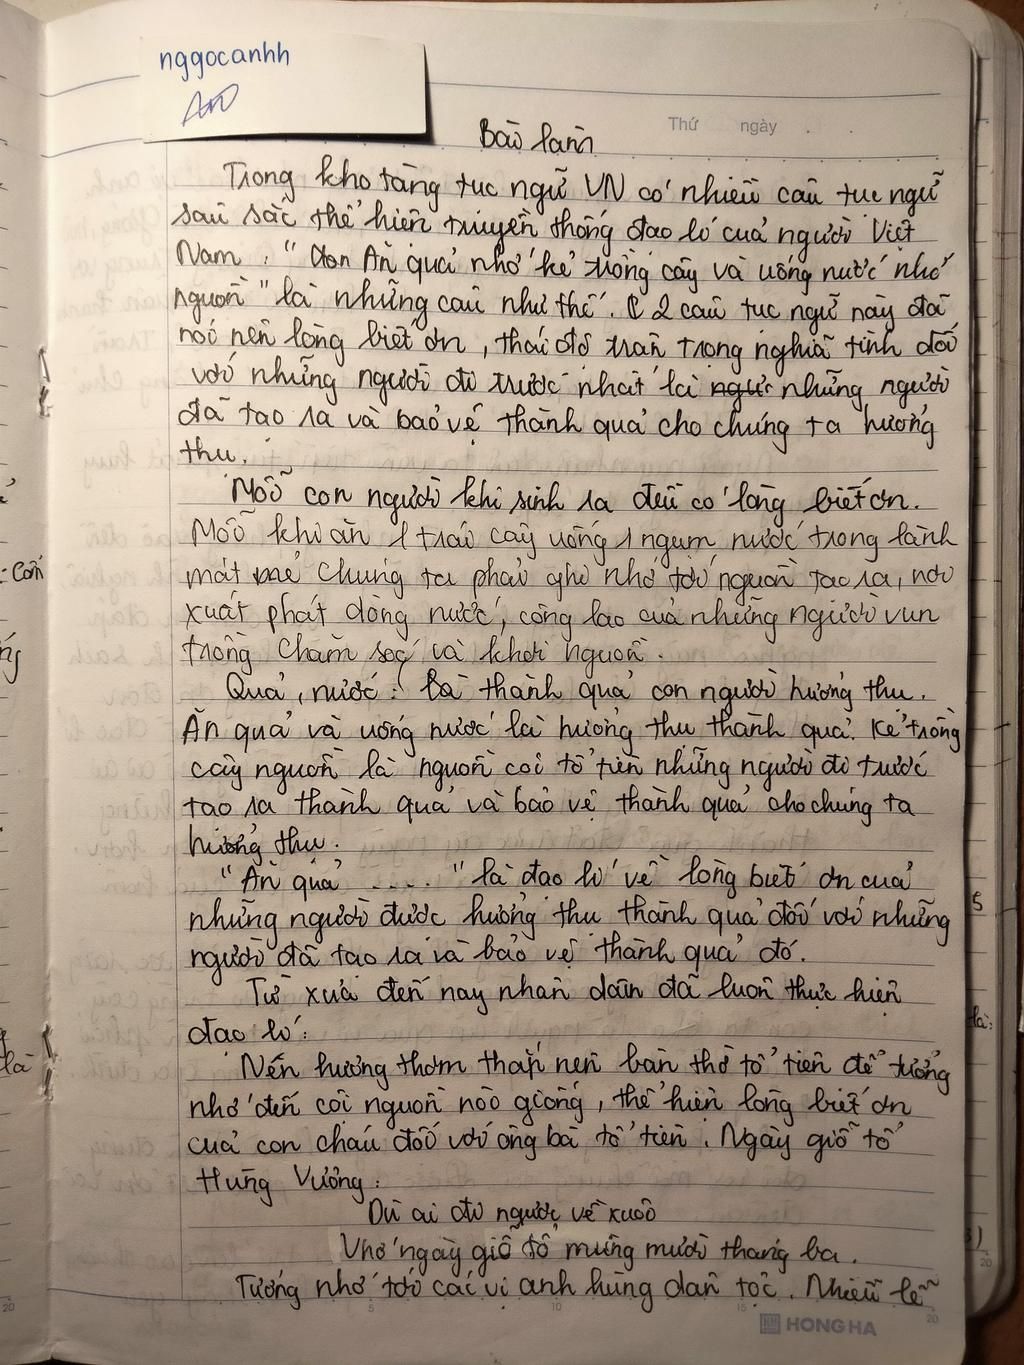 nggocanhh
Thứ ngày
Bài làm
Trong kho tàng tục ngữ VN có nhiều câu tục ngữ
sâu sắc thể hiện truyền thống đạo lí của người Việt
Nam. "Ăn quả nhớ kẻ trồng cây và uống nước nhớ
nguồn" là những câu như thế. 2 câu tục ngữ này đã
nói nên lòng biết ơn, thái độ trân trọng nghĩa tình đối
với những người đi trước nhất là những người
đã tạo ra và bảo vệ thành quả cho chúng ta hưởng
thụ.
Mỗi con người khi sinh ra đều có lòng biết ơn.
Mỗi khi ăn 1 trái cây uống 1 ngụm nước trong lành
mát mẻ chúng ta phải ghi nhớ tới nguồn tạo ra, nơi
xuất phát dòng nước, công lao của những người vun
trồng chăm sóc và khơi nguồn.
Quả, nước: Là thành quả con người hưởng thụ.
Ăn quả và uống nước là hưởng thụ thành quả. Kẻ trồng
cây nguồn là nguồn cội tổ tiên những người đi trước
tạo ra thành quả và bảo vệ thành quả cho chúng ta
hưởng thụ.
"Ăn quả ....." là đạo lí về lòng biết ơn của
những người được hưởng thụ thành quả đối với những
người đã tạo ra và bảo vệ thành quả đó.
Từ xưa đến nay nhân dân đã luôn thực hiện
đạo lí:
Nén hương thơm thắp nên bàn thờ tổ tiên để tưởng
nhớ đến cội nguồn nòi giống, thể hiện lòng biết ơn
của con cháu đối với ông bà tổ tiên. Ngày giỗ tổ
Hùng Vương:
Dù ai đi ngược về xuôi
Nhớ ngày giỗ tổ mùng mười tháng ba.
Tưởng nhớ tới các vị anh hùng dân tộc. Nhiều lễ
HONG HA